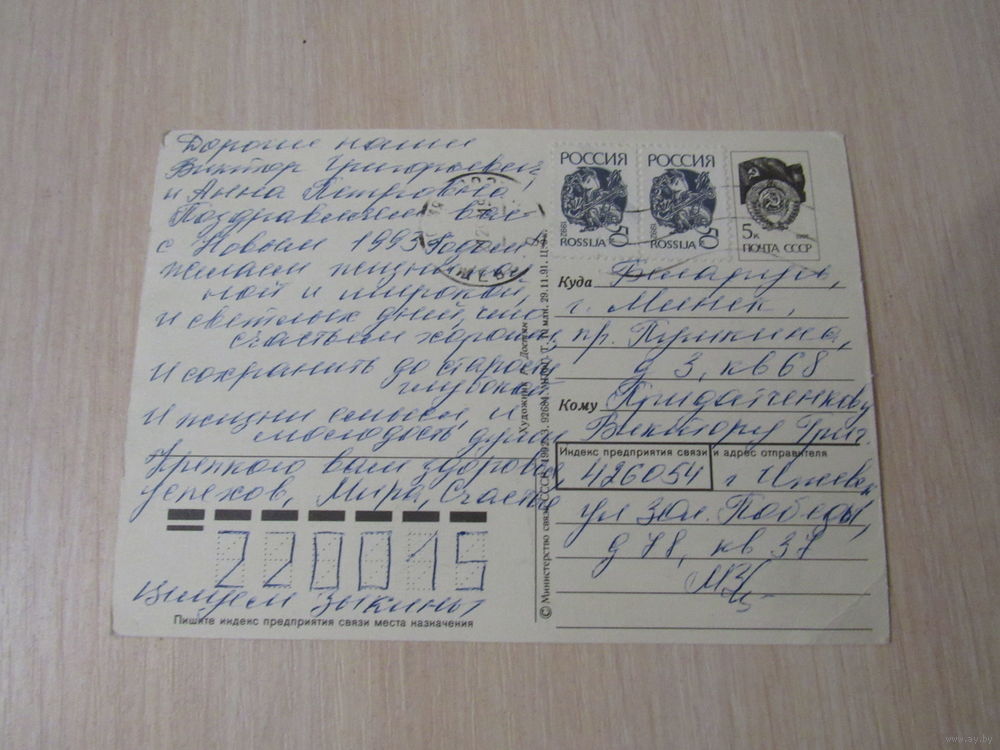 Дорогие наши
Виктор Григорьевич
и Анна Петровна,
Поздравляем вас
с Новым 1993 Годом
желаем жизни
ной и широкой,
И светлых дней, что
счастьем хороши,
И сохранить до старости
глубокой
И жизни смысл, и
молодость души
Крепкого вам здоровья,
успехов, Мира, Счастья
220015
Целуем Зыкины
Пишите индекс предприятия связи места назначения
РОССИЯ
50
1992
ROSSIJA
РОССИЯ
50
1992
ROSSIJA
5к
ПОЧТА СССР
Куда Беларусь,
г. Минск,
пр. Пушкина,
д 3, кв 68
Кому Придатченкову
Виктору Григ.
Индекс предприятия связи и адрес отправителя
426054 г Ижевск
ул 30л. Победы,
д 78, кв 37
© Министерство связи СССР. 1992.
29.11.91.
Художник
www.ay.by